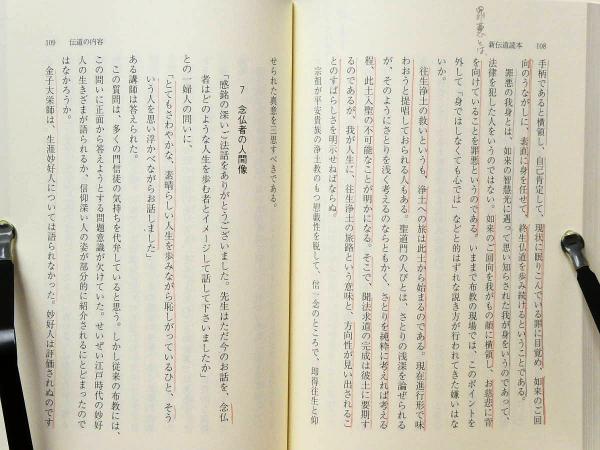 新伝道読本　108
罪悪とは、
手柄であると横領し、自己肯定して、現状に眠りこんでいる罪に目覚め、如来のご回
向のうながしに、素直に身を任せて、終生仏道を歩み続けるということである。
罪悪の我身とは、如来の智慧光に遇って思い知らされた我が身をいうのであって、
法律を犯した人をいうのではない。如来のご回向を我がもの顔に横領し、お慈悲に背
を向けていることを罪悪というのである。いままで布教の現場では、このポイントを
外して「身ではしなくても心では」などと的はずれな説き方が行われてきた嫌いはな
いか。
往生浄土の救いというも、浄土への旅は此土から始まるのである。現在進行形で味
わおうと提唱しておられる人もある。聖道門の人びとは、さとりの浅深を論ぜられる
が、そのようにさとりを浅く考えるのならともかく、さとりを純粋に考えれば考える
程、此土入聖の不可能なことが明かになる。そこで、聞法求道の完成は彼土に要期す
るのであるが、我が人生に、往生浄土の旅路という意味と、方向性が見い出されるこ
とのすばらしさを明示せねばならぬ。
宗祖が平安貴族の浄土教のもつ悲観性を脱して、信一念のところで、即得往生と仰
109　伝道の内容
せられた真意を三思すべきである。
7　念仏者の人間像
「感銘の深いご法話をありがとうございました。先生はただ今のお話を、念仏
者はどのような人生を歩む者とイメージして話して下さいましたか」
との一婦人の問いに、
「とてもさわやかな、素晴らしい人生を歩みながら恥しがっているひと、そう
いう人を思い浮かべながらお話しました」
ある講師は答えられた。
この質問は、多くの門信徒の気持ちを代弁していると思う。しかし従来の布教には、
この問いに正面から答えようとする問題意識が欠けていた。せいぜい江戸時代の妙好
人の生きざまが語られるか、信仰深い人の姿が部分的に紹介されるにとどまったので
はなかろうか。
金子大栄師は、生涯妙好人については語られなかった。妙好人は評価されぬのです